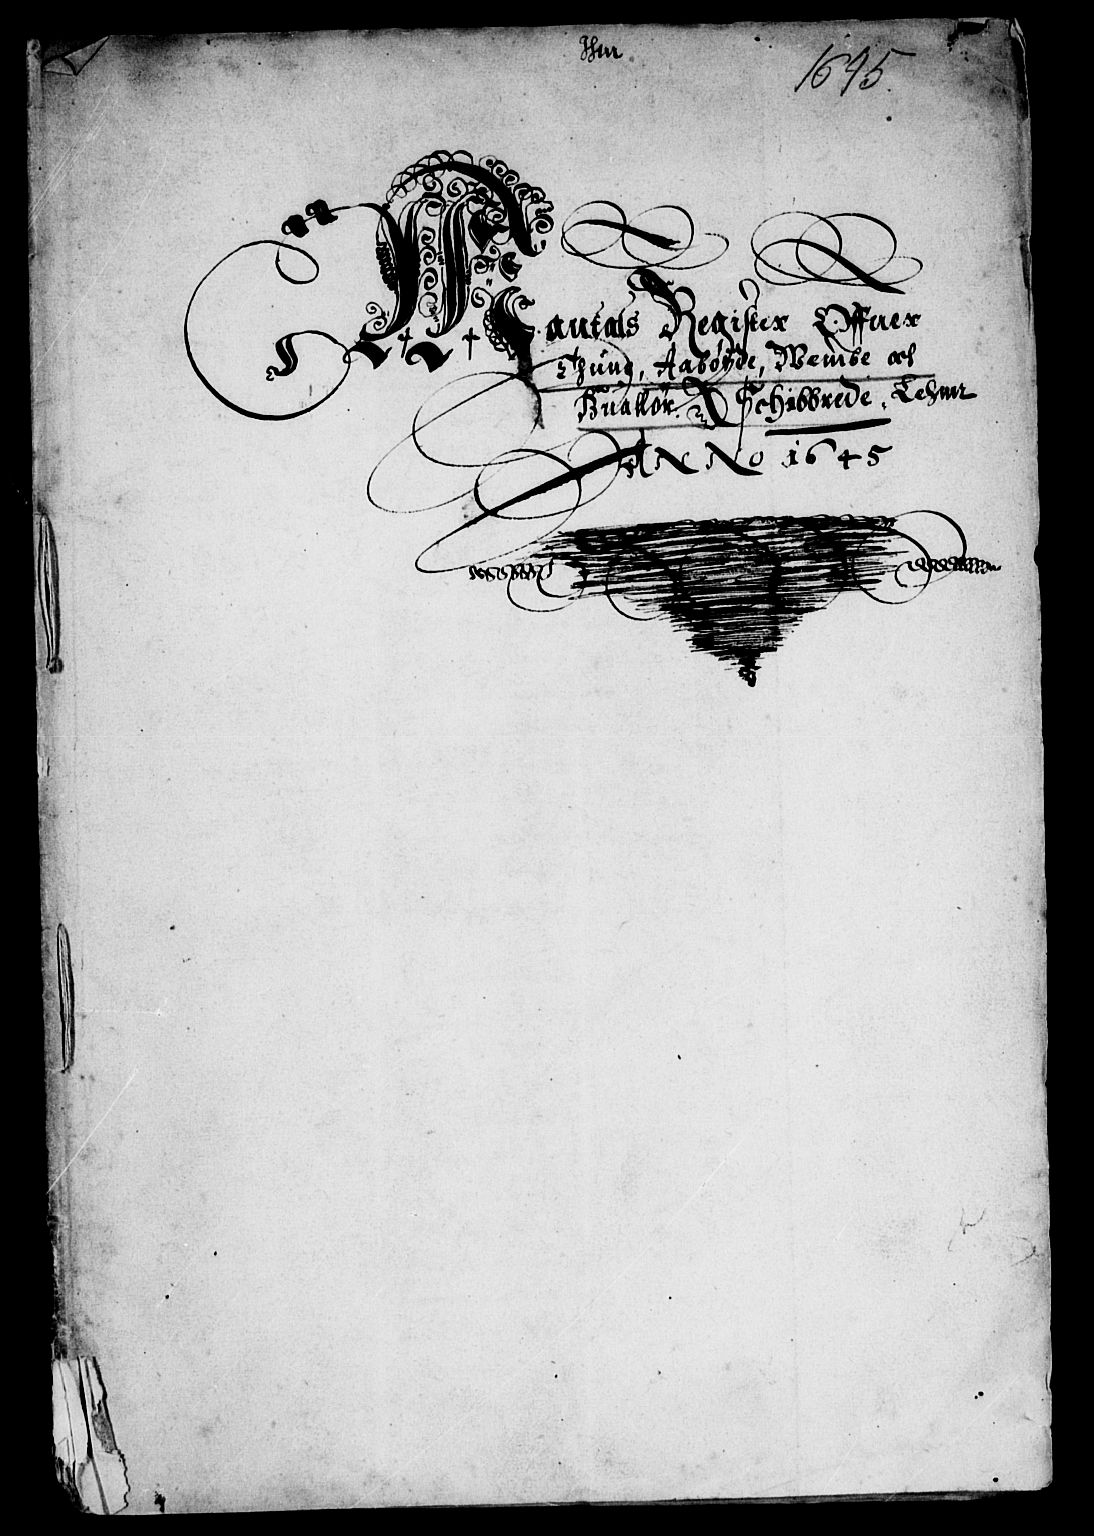 1645.
Mantals Register Offuer
Thüng, Aabøyde, Wembe och
Buskør. Schibbrede. Lehnn
ANNO 1645